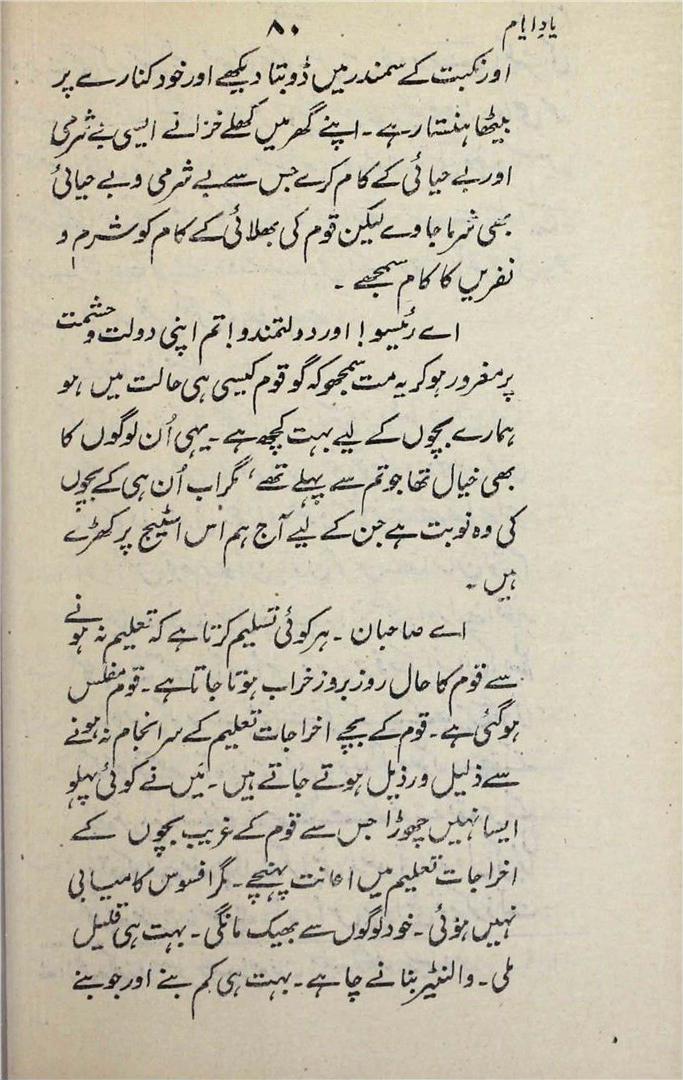 یادِ ایام
۸۰
اور نکبت کے سمندر میں ڈوبتا دیکھے اور خود کنارے پر
بیٹھا ہنستا رہے ۔ اپنے گھر میں کھلے خزانے ایسی بے شرمی
اور بے حیائی کے کام کرے جس سے بے شرمی و بے حیائی
بھی شرما جاوے لیکن قوم کی بھلائی کے کام کو شرم و
نفریں کا کام سمجھے ۔
اے رئیسو! اور دولتمندو! تم اپنی دولت و حشمت
پر مغرور ہوکر یہ مت سمجھو کہ گو قوم کیسی ہی حالت میں ہو
ہمارے بچوں کے لیے بہت کچھ ہے ۔ یہی اُن لوگوں کا
بھی خیال تھا جو تم سے پہلے تھے، مگر اب اُن ہی کے بچوں
کی وہ نوبت ہے جن کے لیے آج ہم اس اسٹیج پر کھڑے
ہیں ۔
اے صاحبان ۔ ہر کوئی تسلیم کرتا ہے کہ تعلیم نہ ہونے
سے قوم کا حال روز بروز خراب ہوتا جاتا ہے ۔ قوم مفلس
ہوگئی ہے ۔ قوم کے بچے اخراجات تعلیم کے سرانجام نہ ہونے
سے ذلیل و رذیل ہوتے جاتے ہیں ۔ میں نے کوئی پہلو
ایسا نہیں چھوڑا جس سے قوم کے غریب بچوں کے
اخراجات تعلیم میں اعانت پہنچے ۔ مگر افسوس کامیابی
نہیں ہوئی ۔ خود لوگوں سے بھیک مانگی ۔ بہت ہی قلیل
ملی ۔ والنٹیر بنانے چاہے ۔ بہت ہی کم بنے اور جو بنے